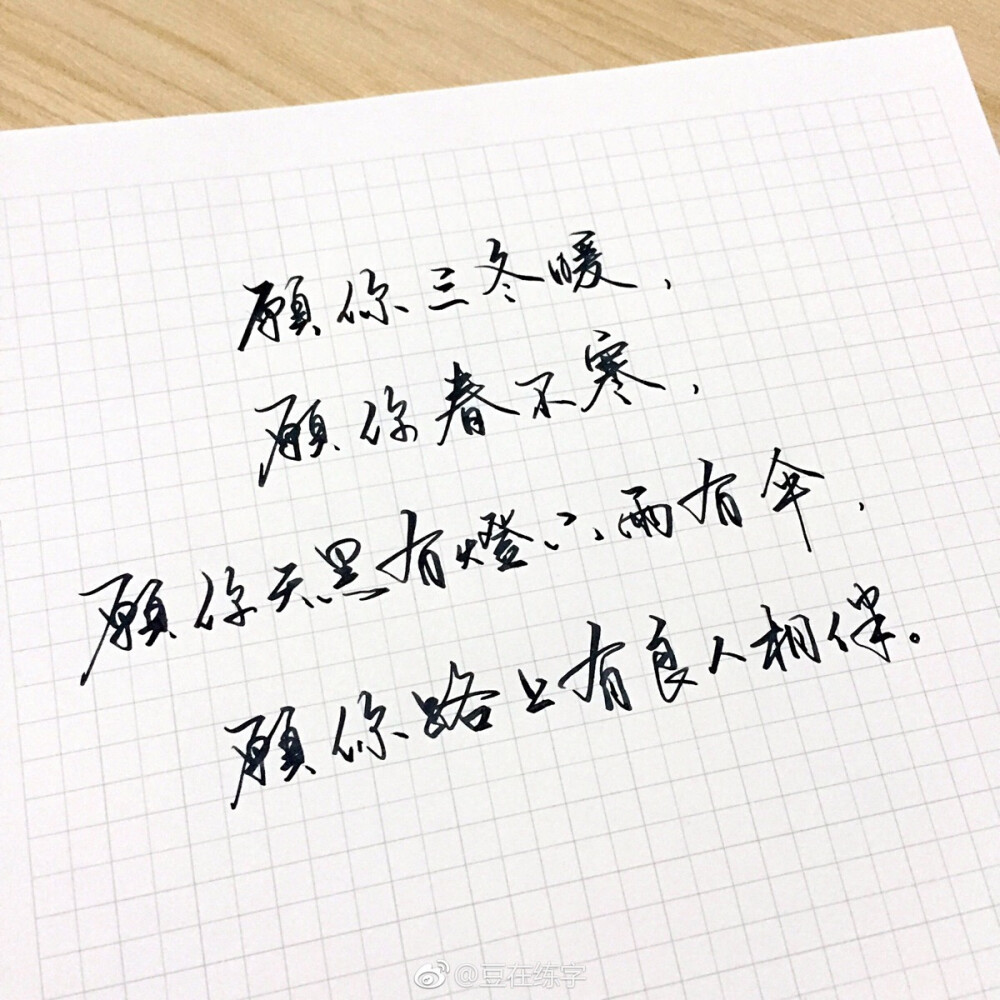 願你三冬暖，
願你春不寒，
願你天黑有燈下雨有伞，
願你路上有良人相伴。
@豆在练字